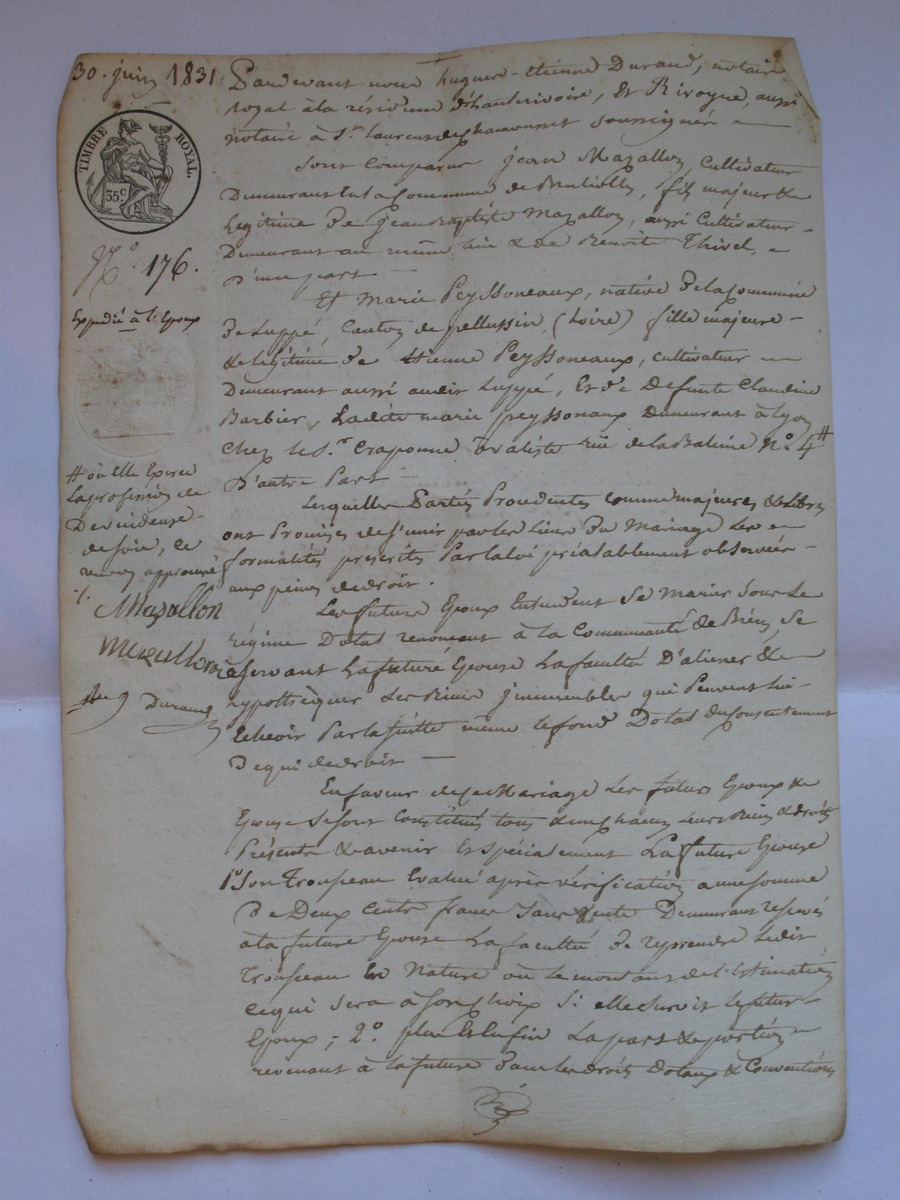 30. juin 1831.
TIMBRE ROYAL.
35.c
N.o 176.
Expédié à l'Epoux
# où elle Exerce
la profession de
Devideuse
de soie, ce
renvoi approuvé
./.
Mazallon
Mazallon
Durand
Pardevant nous hugues-Etienne Durand, notaire
royal à la résidence d'hauterivoire, Et Rivoyre, aussi
notaire à S.t laurent de chamousset soussignés
Sont Comparus jean Mazallon, Cultivateur
Demeurant en la Commune de Brulioles, fils majeur &
Legitime De jean Baptiste Mazallon, aussi Cultivateur
Demeurant au même lieu & de Benoite Thivel,
D'une part
Et Marie Peyssoneaux, native De la Commune
De Luppé, Canton de pellussin (Loire) fille majeure
& legitime De Etienne Peyssoneaux, cultivateur
Demeurant aussi audit Luppé, Et de Defunte Claudine
Barbier, Ladite marie peyssonaux Demeurant à Lyon
Chez le S.r Craponne ruë de la Baleine N.o 4 #
D'autre Part
Lesquelles Parties Procédantes comme majeures & Libres
ont Promises de s'unir par les liens Du Mariage Les
formalités prescrites Par la loi préalablement observées
aux peines de droit.
Les futurs Epoux Entendent Se Marier sous Le
régime Dotal renonçant à la Communauté de Biens, Se
réservant La future Epouse La faculté D'aliener &
hypothèquer Les Biens jmmeubles qui Peuvent lui
Echeoir Par la suitte même le fond Dotal du Consentement
De qui de droit
En faveur de ce Mariage Les futurs Epoux &
Epouse Se sont Constitués tous & un chacun Leurs Biens & droits
Présents & avenir Et spécialement La future Epouse
1.o Son Trousseau Evalué après vérification a une somme
De Deux Cents francs Demeurant reservés
à la future Epouse La faculté De reprendre Ledit
Trousseau En Nature ou le montant de l'Estimation
ce qui sera à son choix Si elle survit le futur
Epoux; 2.o plus Et Enfin La part & portion
revenant à la future Dans les droits Dotaux & Conventions